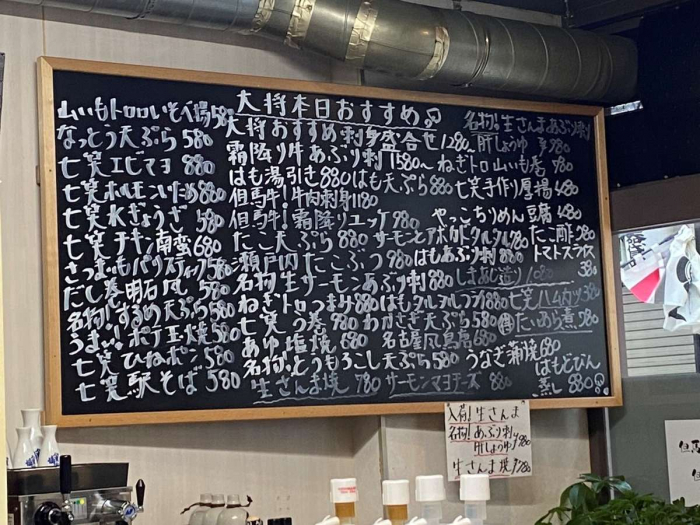 大将本日おすすめ♪
山いもトロロいそべ揚580
なっとう天ぷら 580
七笑エビマヨ 880
七笑ホルモンいため880
七笑水ぎょうざ 580
七笑チキン南蛮680
さつまいもパリスティック580
だし巻明石風 580
名物!するめ天ぷら580
うまい!ポテ玉焼580
七笑ひねポン 580
七笑駅そば 580
大将おすすめ刺身盛合せ1280~
霜降り牛あぶり刺1580~
はも湯引き880 はも天ぷら880
但馬牛!牛肉刺身1180
但馬牛!霜降りユッケ980
たこ天ぷら 880
瀬戸内たこぶつ980
名物生サーモンあぶり刺880
ねぎトロつまみ880
七笑う巻 980
あゆ塩焼 680
名物!とうもろこし天ぷら580
生さんま焼 780
サーモンマヨチーズ 880
名物!生さんまあぶり刺
肝しょうゆ 980
ねぎトロ山いも巻 980
七笑手作り厚揚480
やっこちりめん豆腐480
サーモンとアボカドタルタル980
たこ酢 580
はもあぶり刺 880
トマトスライス
380
しまあじ造り1080
はもタルタルフライ880
七笑ハムカツ380
わかさぎ天ぷら580
たいめら煮980
名古屋風鳥唐680
うなぎ蒲焼680
はもどびん
蒸し 880
入荷!生さんま
名物!あぶり刺
肝しょうゆ980
生さんま焼780